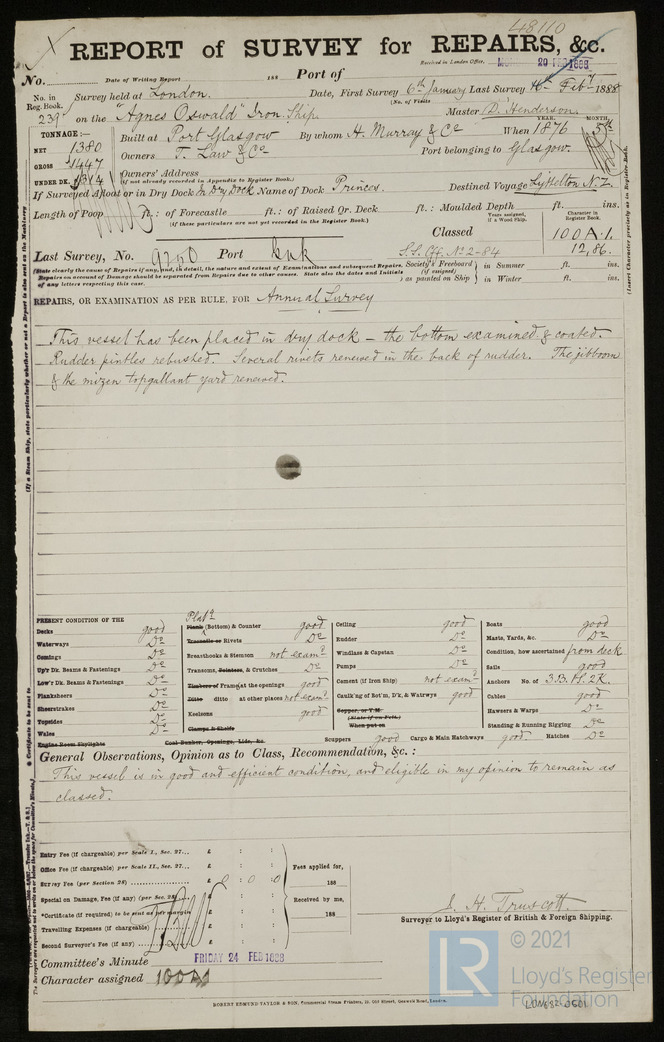 48110
REPORT of SURVEY for REPAIRS, &c.
No. Date of Writing Report 188 Port of Received in London Office, 20 FEB 1888
No. in Reg. Book. Survey held at London. Date, First Survey 6th January Last Survey Feby 1888
(No. of Visits
on the "Agnes Oswald" Iron Ship Master D. Henderson.
TONNAGE:— YEAR. MONTH.
NET 1380 Built at Port Glasgow By whom H. Murray & Co When 1876 5th
GROSS 1447 Owners T. Law & Co Port belonging to Glasgow.
UNDER DK. 1314 Owners' Address
(if not already recorded in Appendix to Register Book.)
If Surveyed Afloat or in Dry Dock In Dry Dock Name of Dock Princes. Destined Voyage Lyttelton N.Z.
Length of Poop ft.: of Forecastle ft.: of Raised Qr. Deck ft. : Moulded Depth ft. ins.
(if these particulars are not yet recorded in the Register Book.)
Years assigned, if a Wood Ship. Character in Register Book.
Classed 100A.1.
Last Survey, No. 9240 Port Gnk S.S. No 2-84 12,86.
(State clearly the cause of Repairs if any, and, in detail, the nature and extent of Examinations and subsequent Repairs.
Repairs on account of Damage should be separated from Repairs due to other causes. State also the dates and Initials
of any letters respecting this case.
Society's Freeboard (if assigned) as painted on Ship in Summer ft. ins.
in Winter ft. ins.
REPAIRS, OR EXAMINATION AS PER RULE, FOR Annual Survey
This vessel has been placed in dry dock – the bottom examined & coated.
Rudder pintles rebushed. Several rivets renewed in the back of rudder. The jibboom
& the mizen topgallant yard renewed.
PRESENT CONDITION OF THE
Decks good
Waterways Do
Comings Do
Up'r Dk. Beams & Fastenings Do
Low'r Dk. Beams & Fastenings Do
Planksheers Do
Sheerstrakes Do
Topsides Do
Wales Do
Engine Room Skylights
Plank (Bottom) & Counter good
Treenails or Rivets Do
Breasthooks & Stemson not examd
Transoms, Pointers, & Crutches Do
Timbers of Frame at the openings good
Ditto ditto at other places not examd
Keelsons good
Clamps & Shelfs
Coal Bunker, Openings, Lids, &c.
Ceiling good
Rudder Do
Windlass & Capstan Do
Pumps Do
Cement (if Iron Ship) not examd
Caulk'ng of Bot'm, D'k, & Waterwys good
Copper, or Y.M.
(State if on Felt.)
When put on
Scuppers good Cargo & Main Hatchways good Hatches Do
Boats good
Masts, Yards, &c. Do
Condition, how ascertained from deck
Sails good
Anchors No. of 3.B. 1.S. 2K.
Cables good
Hawsers & Warps Do
Standing & Running Rigging Do
General Observations, Opinion as to Class, Recommendation, &c. :
This vessel is in good and efficient condition, and eligible in my opinion to remain as
classed.
Entry Fee (if chargeable) per Scale I., Sec. 27... £ : :
Office Fee (if chargeable) per Scale II., Sec. 27... £ : :
Survey Fee (per Section 28) £ 0 : 0 : 0
Special on Damage, Fee (if any) (per Sec. 28) £ : :
*Certificate (if required) to be sent as per margin
Travelling Expenses (if chargeable) £ : :
Second Surveyor's Fee (if any) £ : :
Fees applied for, 188
Received by me, 188
J. H. Truscott.
Surveyor to Lloyd's Register of British & Foreign Shipping.
Committee's Minute FRIDAY 24 FEB 1888
Character assigned 100A1
ROBERT EDMUND TAYLOR & SON, Commercial Steam Printers, 19, Old Street, Goswell Road, London.
LR © 2021
Lloyd's Register
Foundation